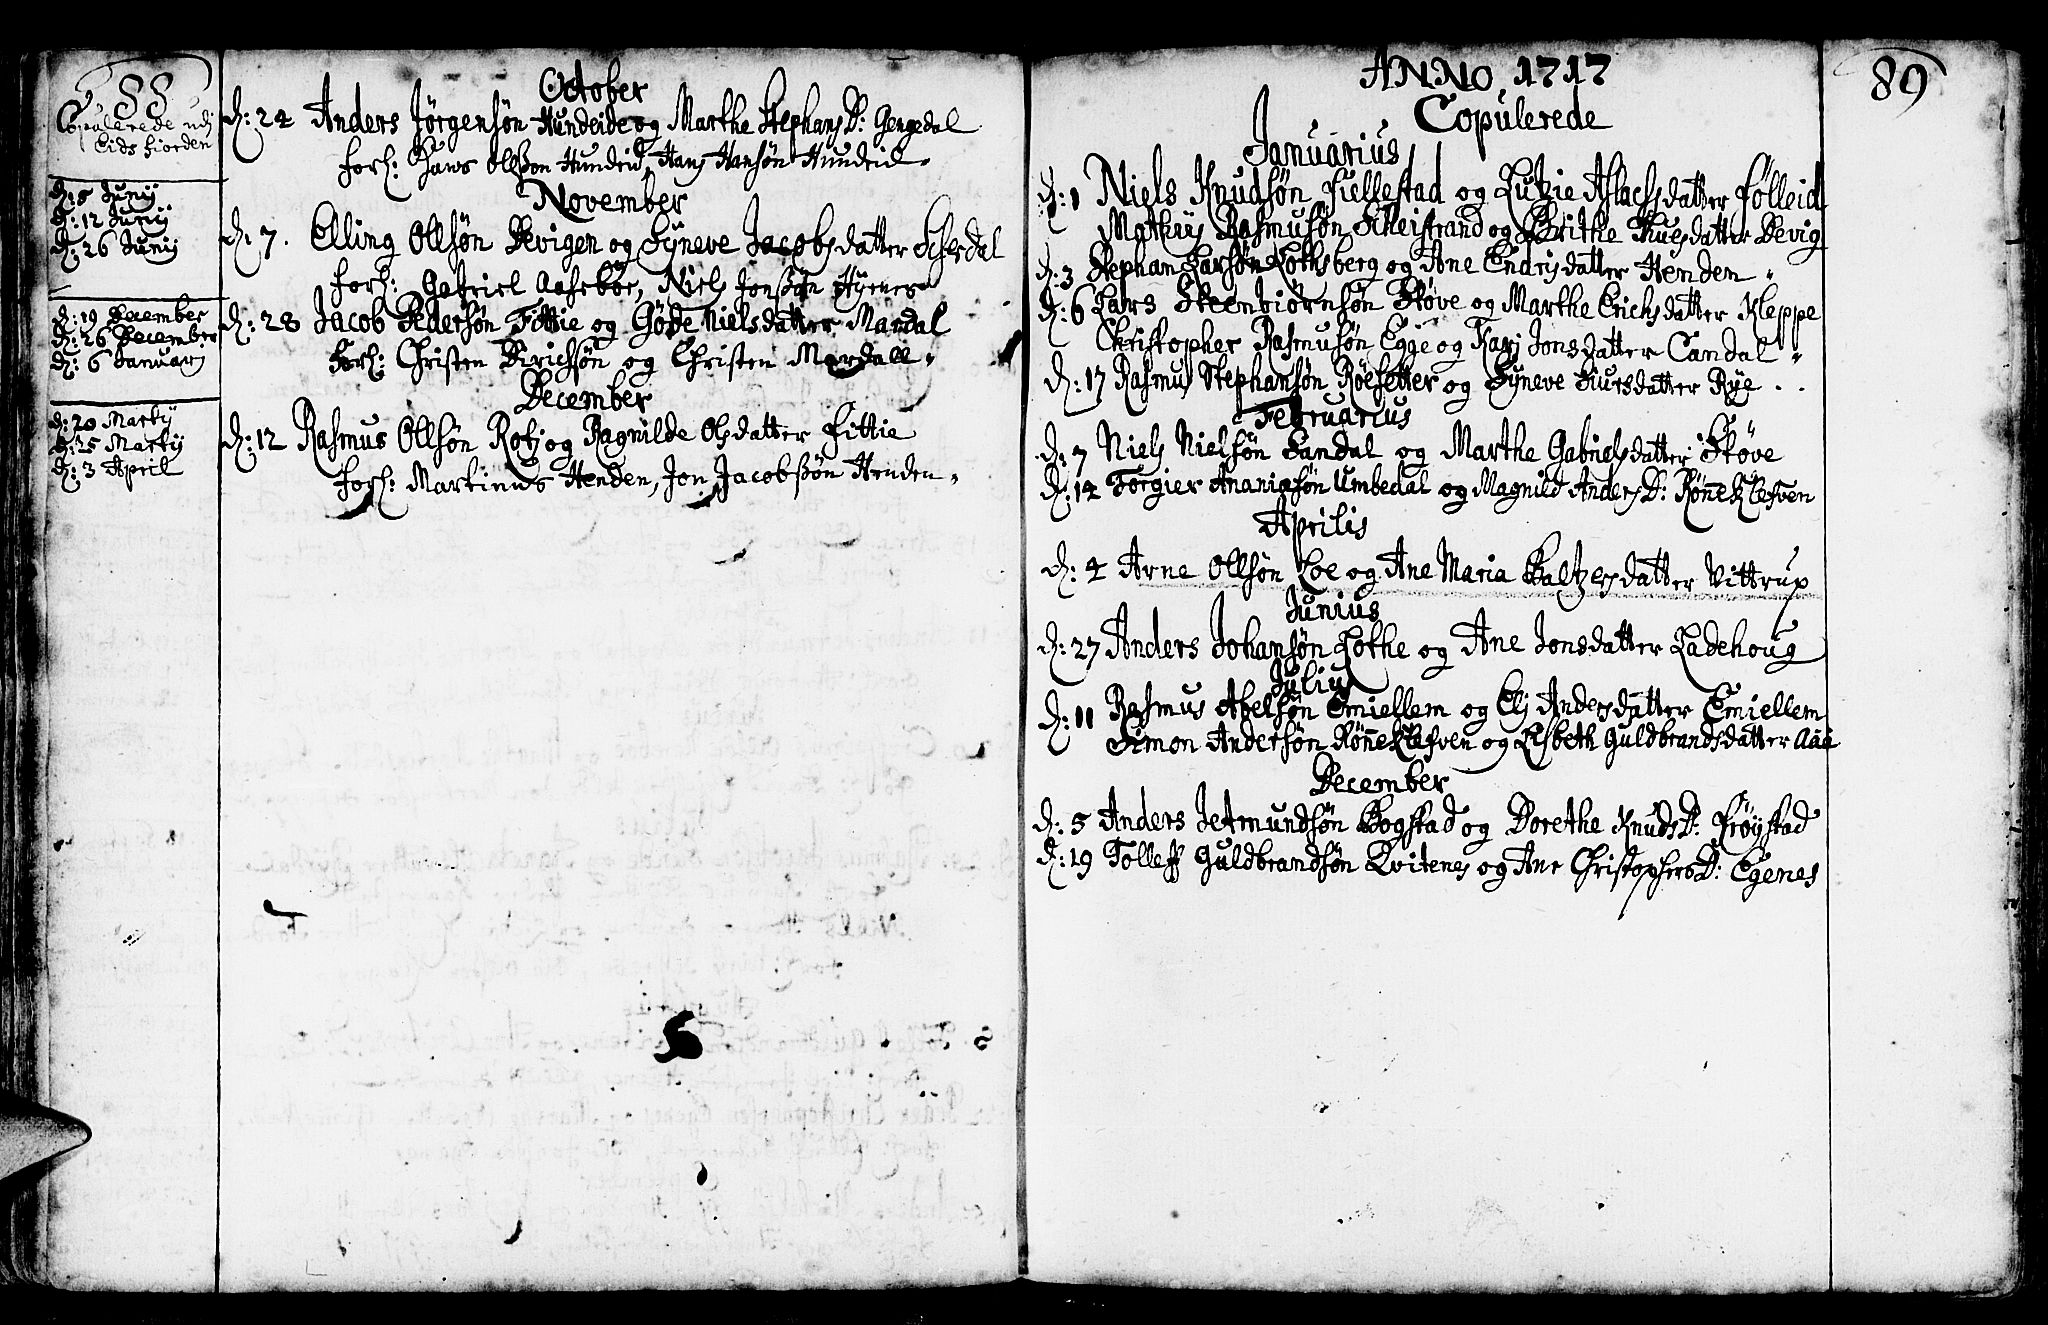 88
Copulerede udj
Eids fiorden
d: 5 Junij
d: 12 Junij
d: 26 Junij
d: 19 December
d: 26 December
d: 6 Januarj
d: 20 Martij
d: 25 Martij
d: 3 April
October
d: 24 Anders Jörgensön Hundeide og Marthe Stephans D: Gengedal
forl: Ollsson Hundeid, Hans Hansön Hundeid
November
d: 7. Elling Ollsön Devigen og Syneve Jacobsdatter
forl: Gabriel Aasebøe, Niels Jonssön Hyenes
d: 28 Jacob Pedersön Fittie og Göde Nielsdatter Mardal
forl: Christen Dirichsön og Christen Mardall
December
d: 12 Rasmus Ollsön Rotj og Ragnilde Olsdatter Fittie
forl: Martinus Henden, Jon Jacobssön Henden
ANNO 1717
89
Copulerede
Januarius
d: 1 Niels Knudsön Fullestad og Lutzie Aslachsdatter Fölleid
Mathijs Rasmusön Skeistrand og Brithe Thuesdatter Devig
d: 3 Stephan Larsön Lothsberg og Ane Endrisdatter Henden
d: 6 Lars Steenbiörnsön Støve og Marthe Erichsdatter Kleppe
Christopher Rasmusön Egge og Karj Jonsdatter Candal
d: 17 Rasmus Stephansön Röesetter og Syneve Siursdatter Rye
Februarius
d: 7 Niels Nielsön Sandal og Marthe Gabrielsdatter Støve
d: 14 Torgier Ananiasön Umbedal og Magnild Anders D: Rönneklefven
Aprilis
d: 4 Arne Ollsön Loe og Ane Maria Baltzersdatter Vittrup
Junius
d: 27 Anders Johansön Lothe og Ane Jonsdatter Ladehoug
Julius
d: 11 Rasmus Abelsön Emiellem og Elj Andersdatter Emiellem
Simon Andersön Rönneklefven og Lisbeth Guldbrandsdatter Aaa
December
d: 5 Anders Jetmundsön Bogstad og Dorethe Knuds D: Frøystad
d: 19 Tolleff Guldbrandsön Qvitenes og Ane Christophers D: Egenes